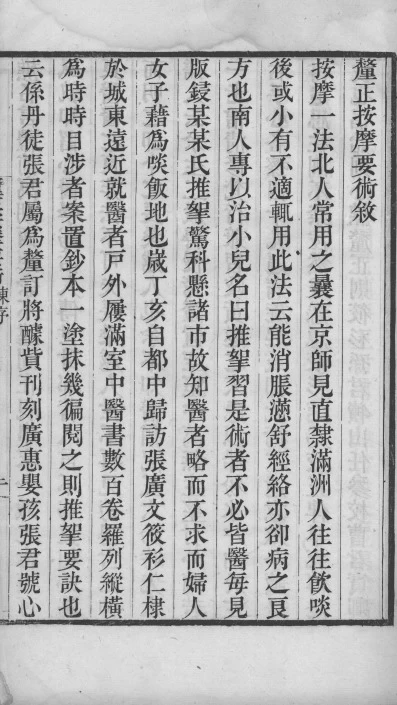 釐正按摩要術敘
按摩一法北人常用之曩在京師見直隸滿洲人往往飲啖
後或小有不適輒用此法云能消脹懣舒經絡亦卻病之良
方也南人專以治小兒名曰推拏習是術者不必皆醫每見
版鋟某某氏推拏驚科懸諸市故知醫者略而不求而婦人
女子藉為啖飯地也歲丁亥自都中歸訪張廣文筱衫仁棣
於城東遠近就醫者戶外屨滿室中醫書數百卷羅列縱橫
為時時目涉者案置鈔本一塗抹幾徧閱之則推拏要訣也
云係丹徒張君屬為釐訂將醵貲刊刻廣惠嬰孩張君號心
陳序